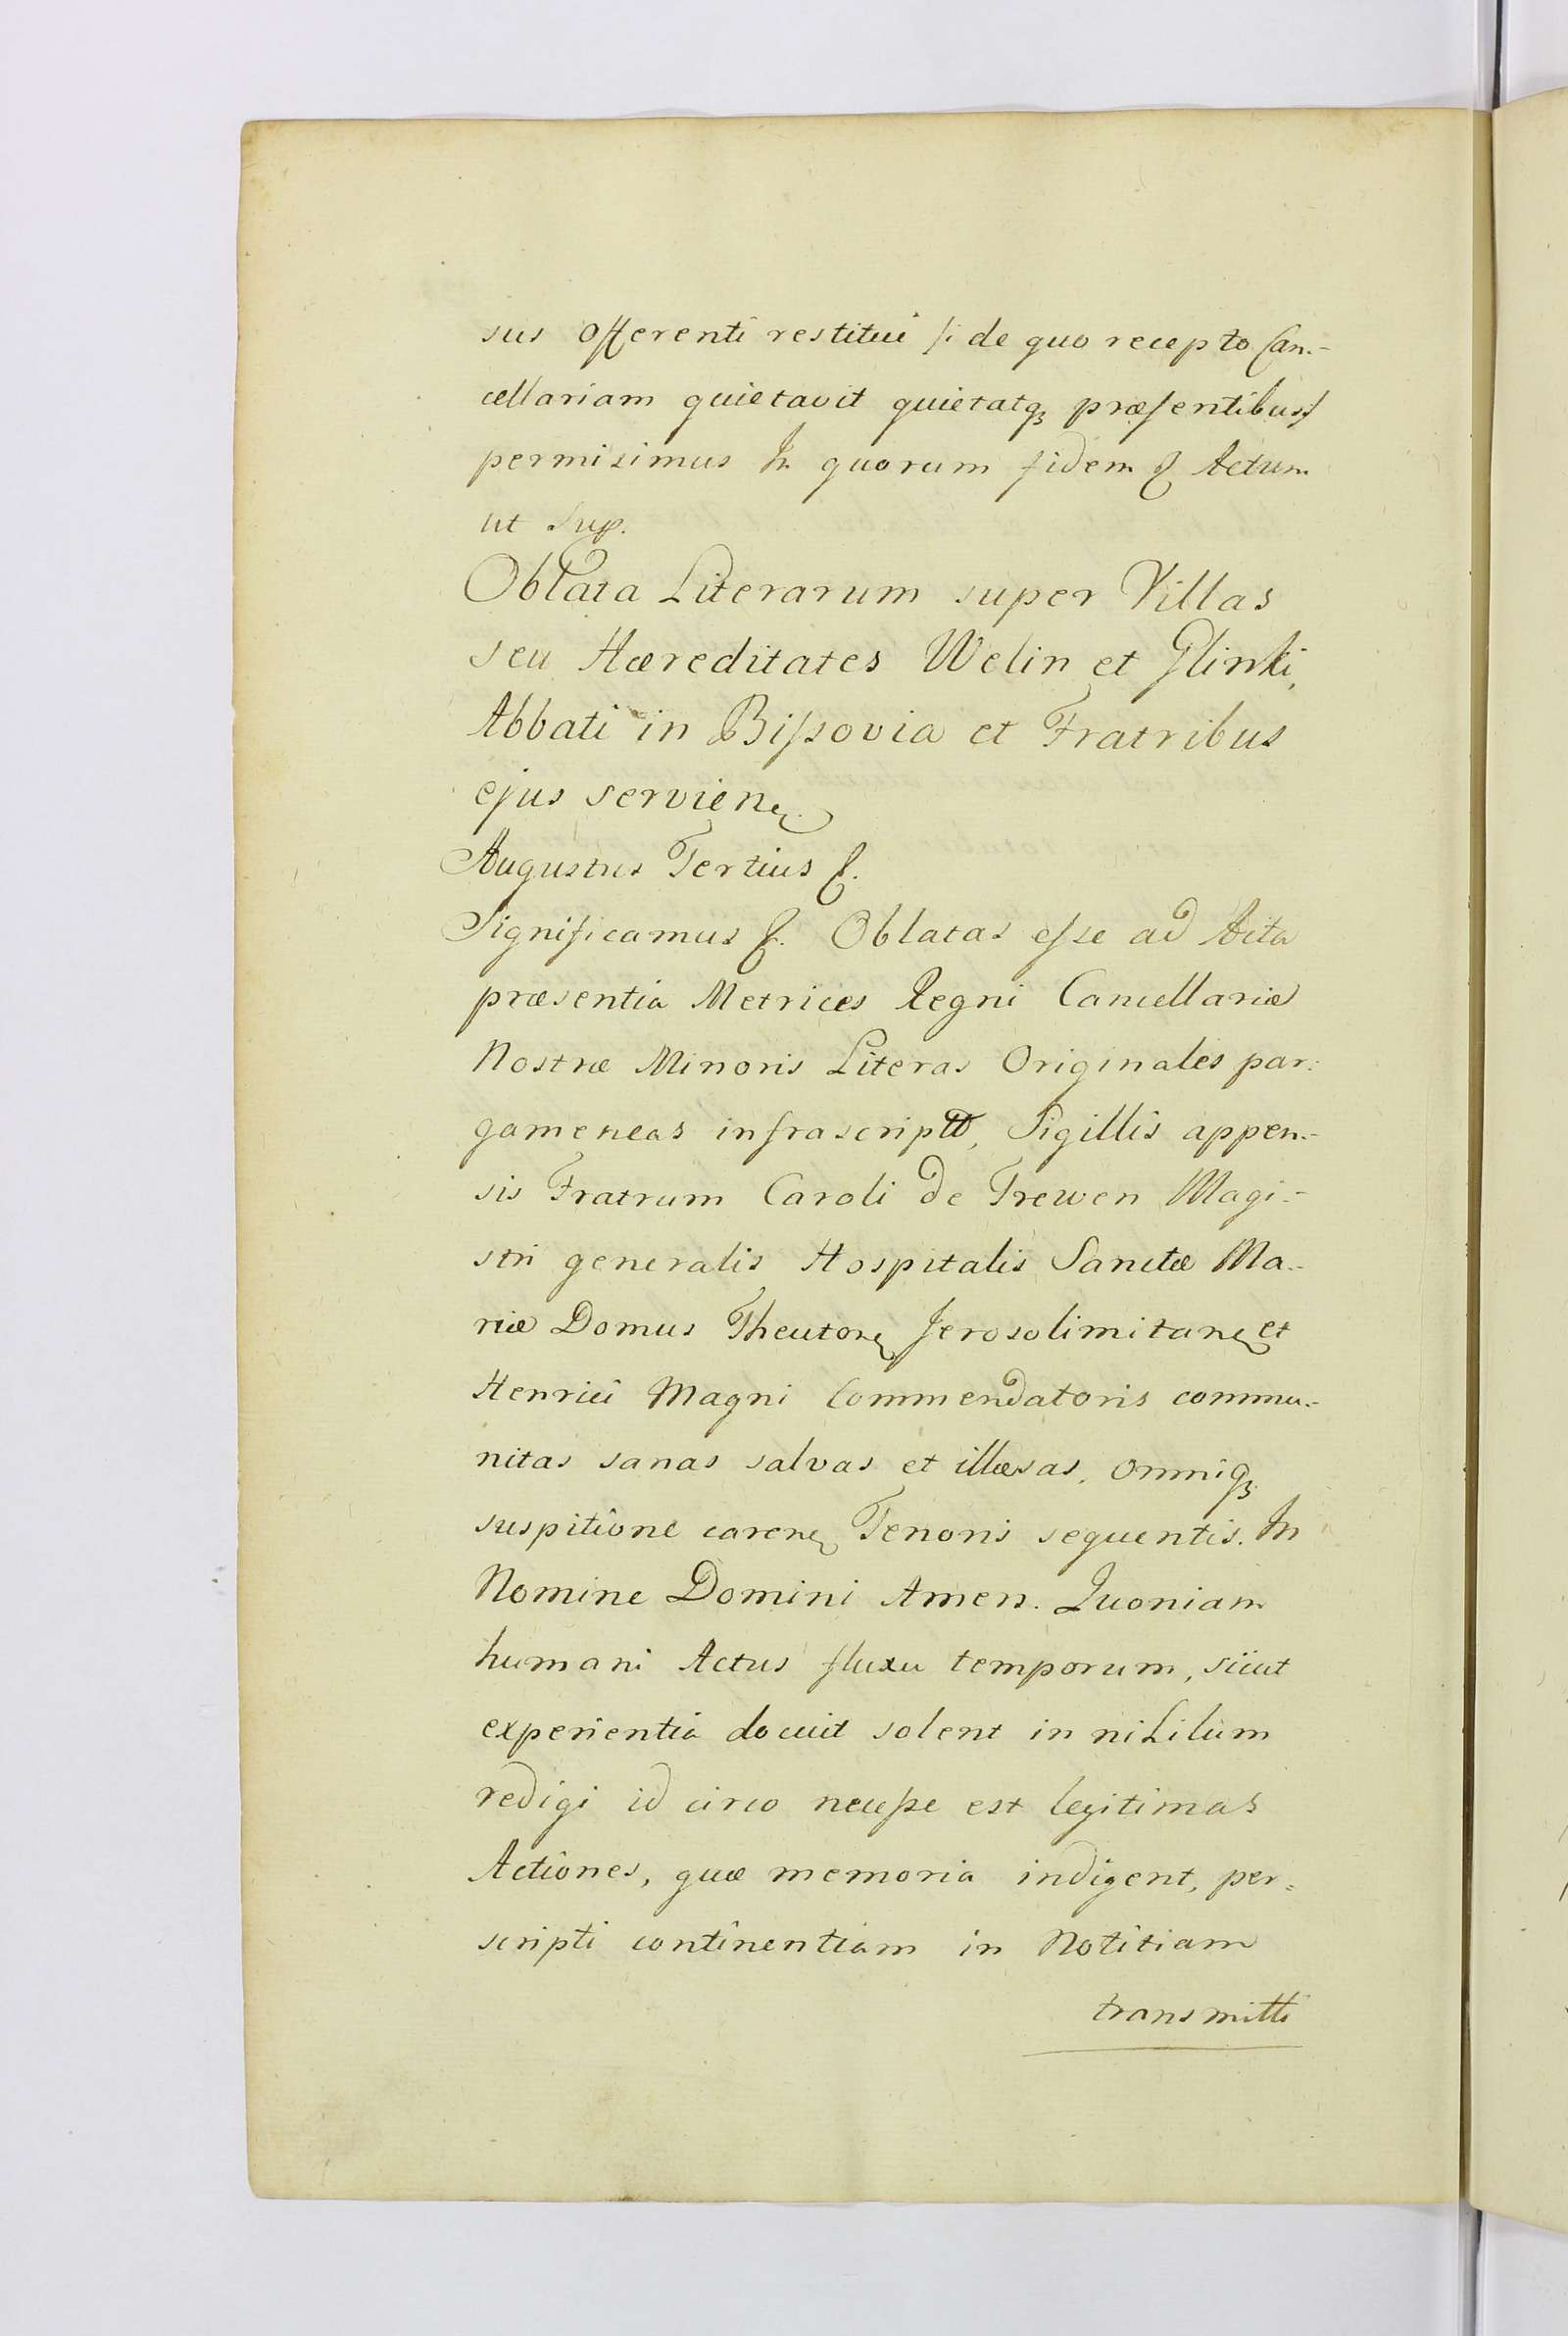 sus offerenti restitui /: de quo recepto Can-
cellariam quietavit quietatqꝫ præsentibus :/
permisimus In quorum fidem & Actum
ut Sup.
Oblata Literarum super Villas
seu Hæreditates Welin et Glinki,
Abbati in Bissovia et Fratribus
ejus servien.
Augustus Tertius &.
Significamus &. Oblatas esse ad Acta
præsentia Metrices Regni Cancellariæ
Nostræ Minoris Literas Originales par:
gameneas infrascriptt, Sigillis appen-
sis Fratrum Caroli de Trewen Magi-
stri generalis Hospitalis Sanctæ Ma-
riæ Domus Theuton Jerosolimitan et
Henrici Magni Commendatoris commu-
nitas sanas salvas et illæsas, omniqꝫ
suspitione caren Tenoris sequentis. In
Nomine Domini Amen. Quoniam
humani Actus fluxu temporum, sicut
experientia docuit solent in nihilum
redigi id circo necesse est legitimas
Actiones, quæ memoria indigent, per=
scripti continentiam in Notitiam
transmitti